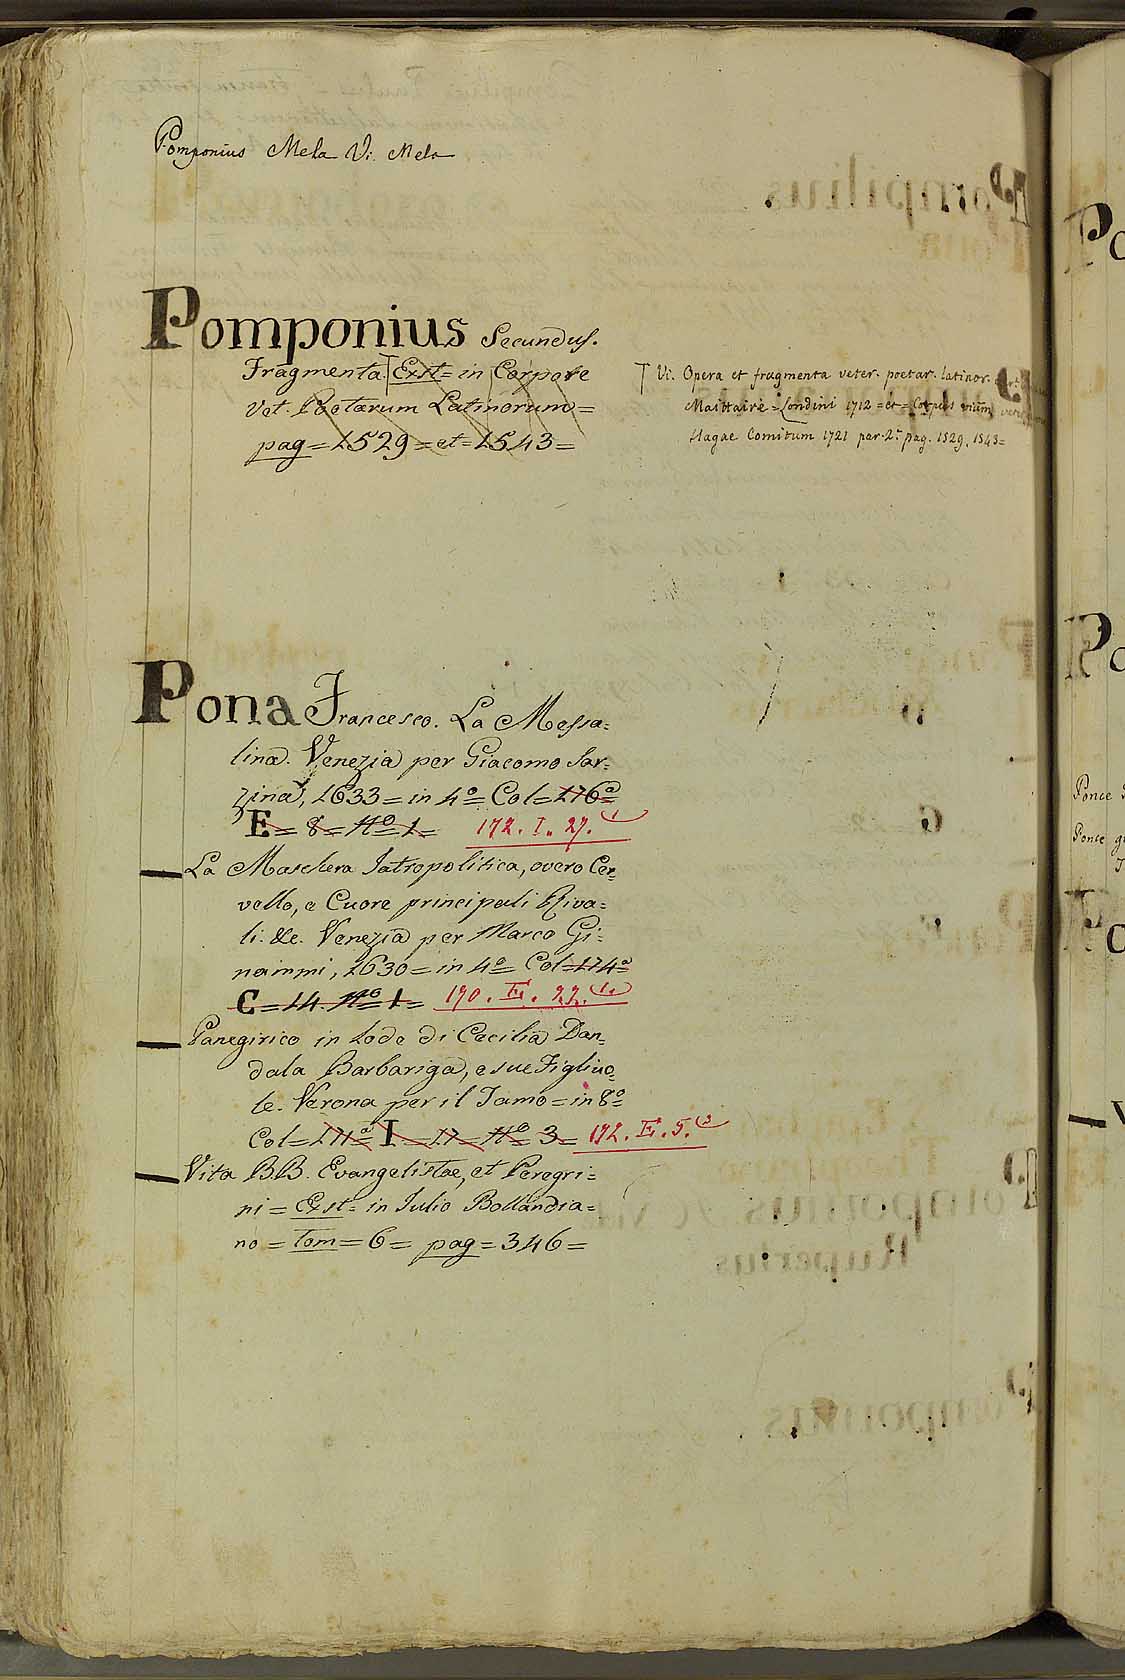 Pomponius Mela Vi. Mela
Pomponius Secundus.
Fragmenta Exst= in Corpore
Vet. Poetarum Latinorum=
pag=1529=et=1543=
Vi. Opera et fragmenta veter. poetar. latinor.
Maittaire=Londini 1712=et=Corpus
Hagae Comitum 1721 par. 2.ª pag. 1529, 1543=
Pona Francesco. La Messa=
lina. Venezia per Giacomo Sar=
zina, 1633=in 4º= Col=176ª
E=8=Nº 1= 172. I. 27. (1
La Maschera Iatropolitica, overo Cer=
vello, e Cuore principali Riva=
li. &c. Venezia per Marco Gi=
nammi, 1630=in 4º= Col=174ª
C=14. Nº 1= 190. E. 22. (1.
Panegirico in lode di Cecilia Dan=
dala Barbariga, e sue Figliuo=
le. Verona per il Tamo=in 8º=
Col=171ª= I=17=Nº 3= 192. E. 5. (3
Vita B.B. Evangelistae, et Peregri=
ni=Exst= in Julio Bollandia=
no=Tom=6=pag=346=